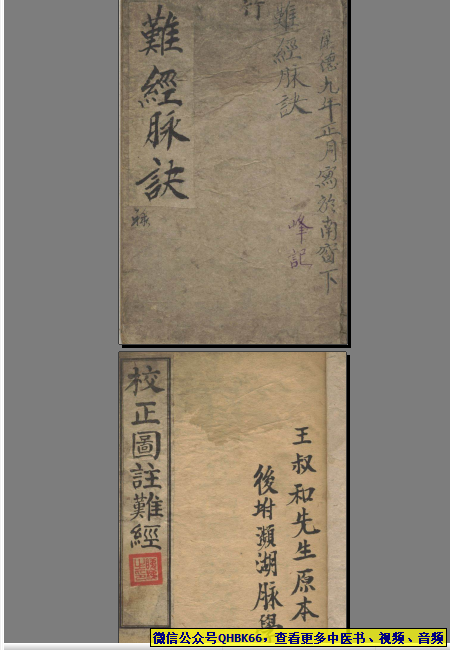 康德九年正月寫於南窗下
峰記
難經脉訣
難經脉訣
王叔和先生原本
後坿瀕湖脉學
校正圖註難經
微信公众号QHBK66，查看更多中医书、视频、音频